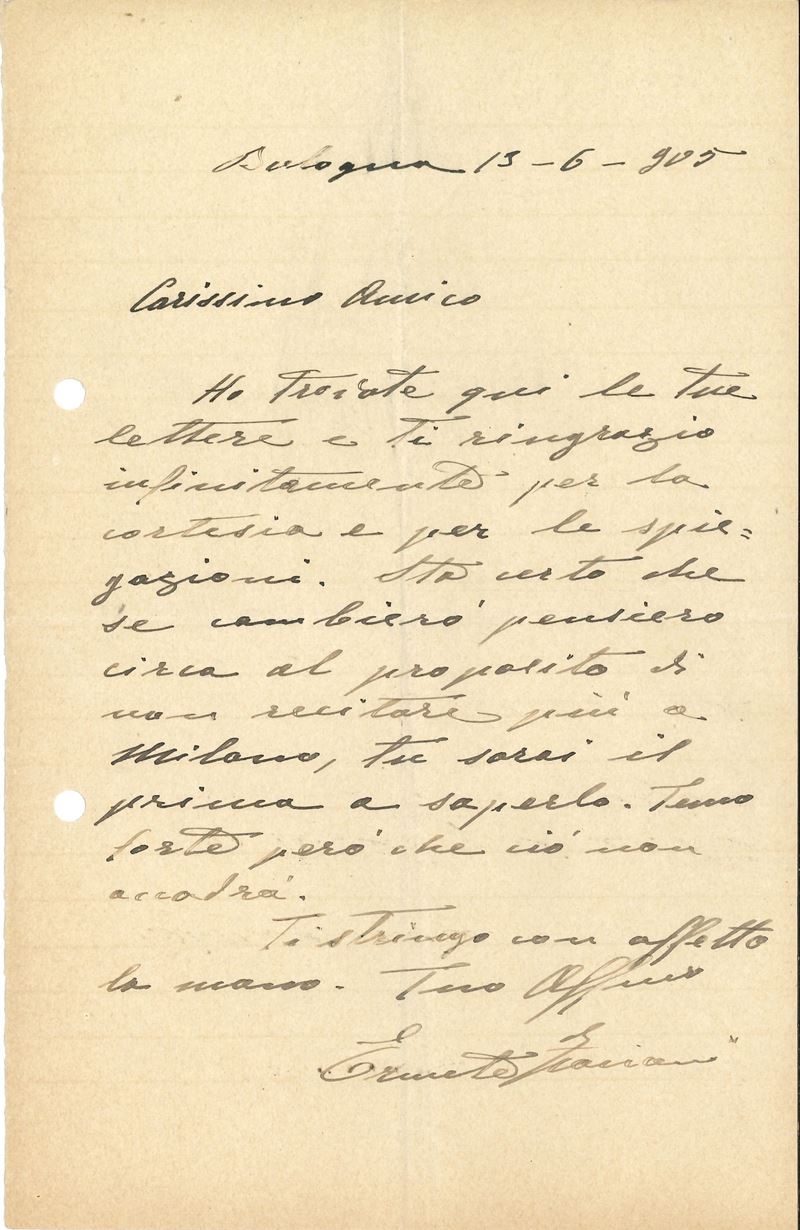 Bologna 13 - 6 - 905
Carissimo Amico
Ho trovate qui le tue
lettere e ti ringrazio
infinitamente per la
cortesia e per le spie=
gazioni. Sta certo che
se cambierò pensiero
circa al proposito di
non recitare più a
Milano, tu sarai il
primo a saperlo. Temo
forte però che ciò non
accadrà.
Ti stringo con affetto
la mano. Tuo Affmo
Ermete Zacconi